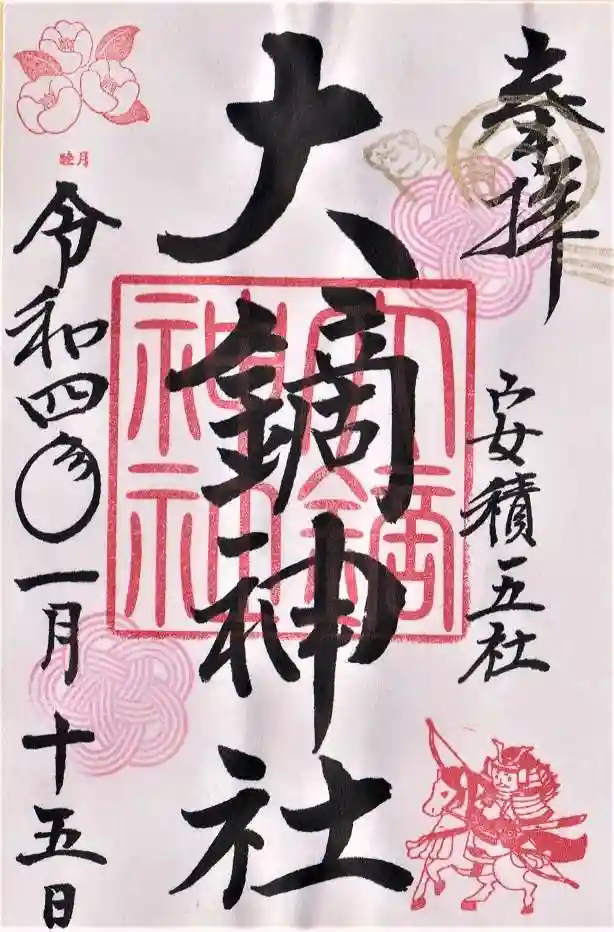 奉拝
安積五社
大鏑神社
大鏑
神社
睦月
令和四年一月十五日